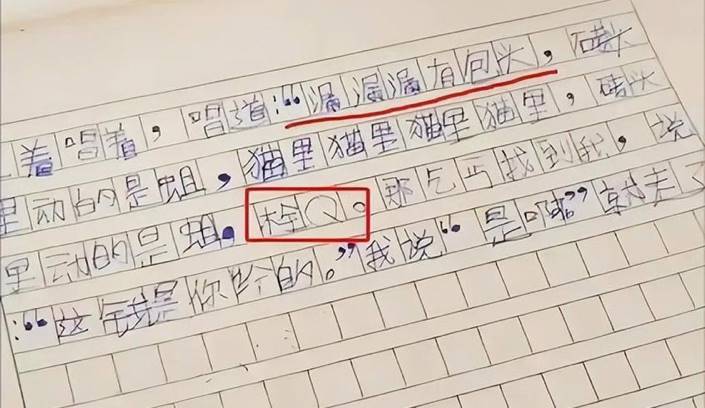 着唱着，唱道：“漏漏漏有包头，砖头
里动的是蛆，猫里猫里猫里猫里，砖头
里动的是蛆。大全Q。那乞丐找到我，说
：“这钱是你给的。”我说“是啊”就走了